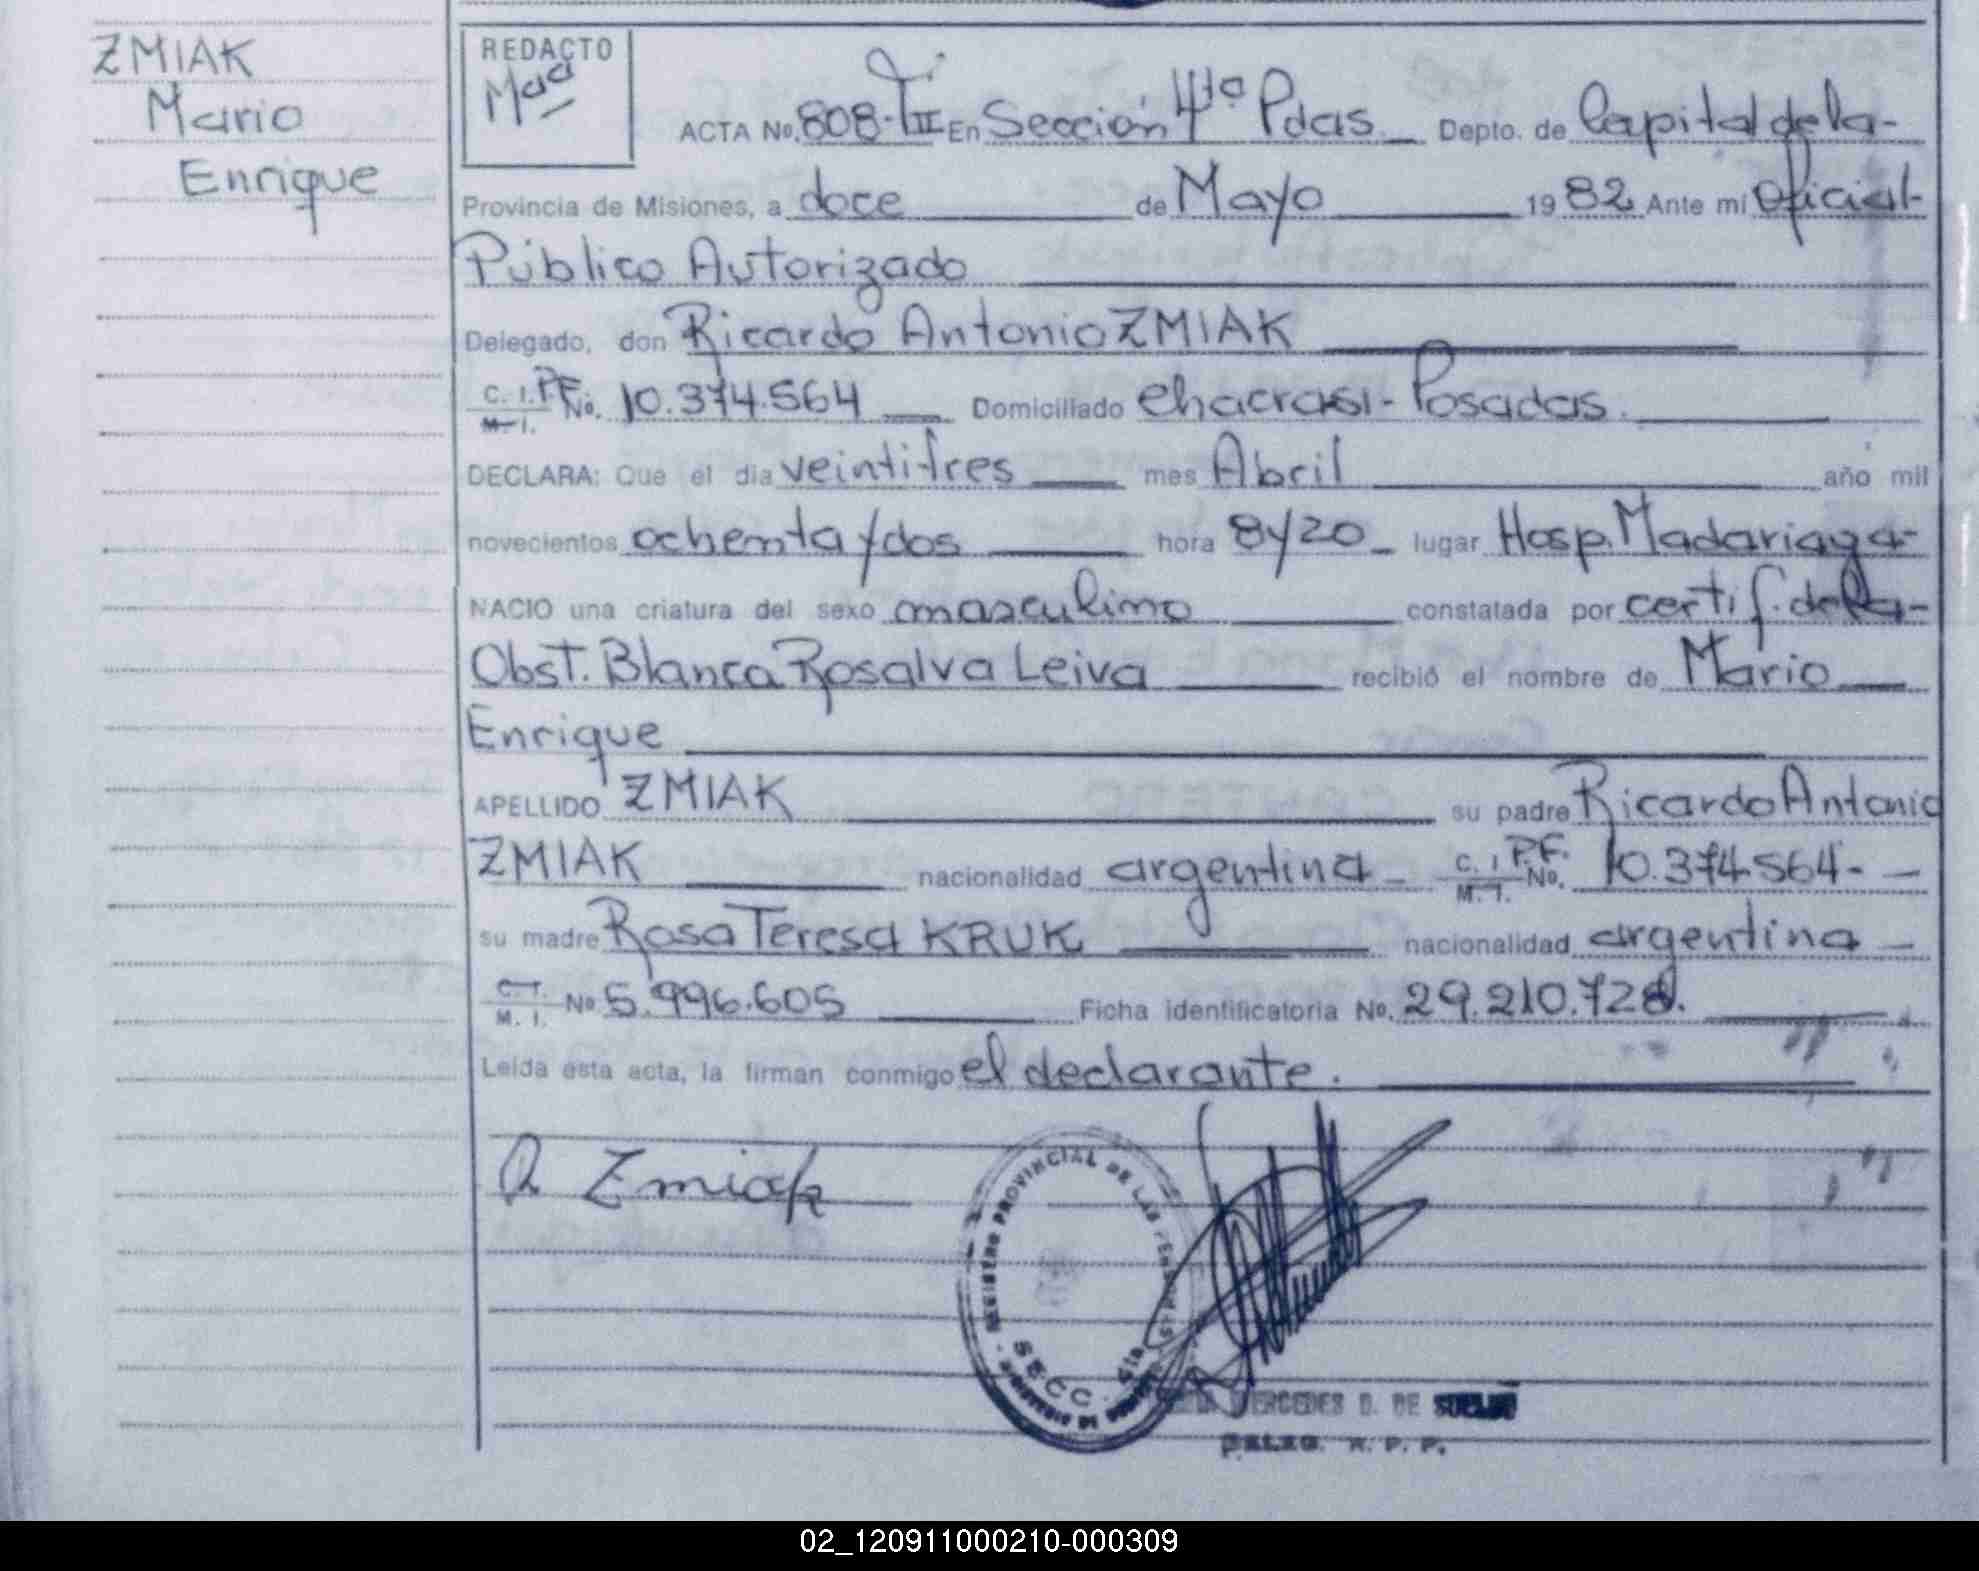 ZMIAK
Mario
Enrique
REDACTO
Mªª
ACTA No. 808-TºIII En Sección 4ta Pdas. Depto. de Capital de la-
Provincia de Misiones, a doce de Mayo 1982 Ante mi Oficial-
Público Autorizado
Delegado, don Ricardo Antonio ZMIAK
C. I. P.F. M. I. No. 10.374.564 Domiciliado Chacra51- Posadas.
DECLARA: Que el dia veintitres mes Abril año mil
novecientos ochenta y dos hora 8y20 lugar Hosp. Madariaga-
NACIO una criatura del sexo masculino constatada por certif. de la-
Obst. Blanca Rosalva Leiva recibió el nombre de Mario
Enrique
APELLIDO ZMIAK su padre Ricardo Antonio
ZMIAK nacionalidad argentina C. I. P.F. M. I. No. 10.374.564-
su madre Rosa Teresa KRUK nacionalidad argentina
C. I. M. I. No 5.996.605 Ficha identificatoria No. 29.210.728.
Leida esta acta, la firman conmigo el declarante.
R Zmiak
REGISTRO PROVINCIAL DE LAS PERSONAS
SECC. 4ta
MERCEDES D. DE
DELEG. R. P. P.
02_120911000210-000309